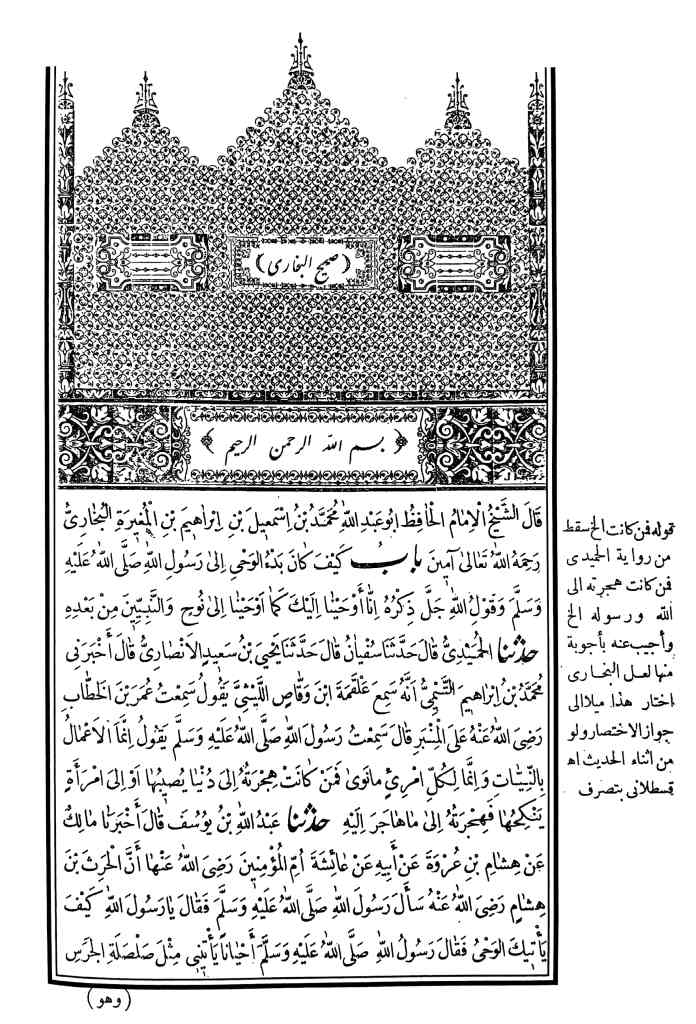 ﴿صحيح البخاري﴾
﴿ بسم الله الرحمن الرحيم ﴾
قَالَ الشَّيْخُ الْاِمَامُ الْحَافِظُ ابُو عَبْدِ اللهِ مُحَمَّدُ بْنُ اِسْمٰعِيلَ بْنِ اِبْرَاهِيمَ بْنِ الْمُغِيرَةِ الْبُخَارِىُّ
رَحِمَهُ اللهُ تَعَالَى آمِينَ باب كَيْفَ كَانَ بَدْءُ الْوَحْىِ اِلَى رَسُولِ اللهِ صَلَّى اللهُ عَلَيْهِ
وَسَلَّمَ وَقَوْلُ اللهِ جَلَّ ذِكْرُهُ اِنَّا أَوْحَيْنَا اِلَيْكَ كَمَا اَوْحَيْنَا اِلَى نُوحٍ وَالنَّبِيِّينَ مِنْ بَعْدِهِ
حدثنا الْحُمَيْدِىُّ قَالَ حَدَّثَنَا سُفْيَانُ قَالَ حَدَّثَنَا يَحْيَى بْنُ سَعِيدٍ الْاَنْصَارِىُّ قَالَ أَخْبَرَنِى
مُحَمَّدُ بْنُ اِبْرَاهِيمَ التَّيْمِىُّ اَنَّهُ سَمِعَ عَلْقَمَةَ ابْنَ وَقَّاصٍ اللَّيْثِىَّ يَقُولُ سَمِعْتُ عُمَرَ بْنَ الْخَطَّابِ
رَضِىَ اللهُ عَنْهُ عَلَى الْمِنْبَرِ قَالَ سَمِعْتُ رَسُولَ اللهِ صَلَّى اللهُ عَلَيْهِ وَسَلَّمَ يَقُولُ اِنَّمَا الْاَعْمَالُ
بِالنِّيَّاتِ وَاِنَّمَا لِكُلِّ امْرِئٍ مَانَوَى فَمَنْ كَانَتْ هِجْرَتُهُ اِلَى دُنْيَا يُصِيبُهَا اَوْ اِلَى امْرَأَةٍ
يَنْكِحُهَا فَهِجْرَتُهُ اِلَى مَا هَاجَرَ اِلَيْهِ حدثنا عَبْدُ اللهِ بْنُ يُوسُفَ قَالَ أَخْبَرَنَا مَالِكٌ
عَنْ هِشَامِ بْنِ عُرْوَةَ عَنْ أَبِيهِ عَنْ عَائِشَةَ اُمِّ الْمُؤْمِنِينَ رَضِىَ اللهُ عَنْهَا أَنَّ الْحَرِثَ بْنَ
هِشَامٍ رَضِىَ اللهُ عَنْهُ سَأَلَ رَسُولَ اللهِ صَلَّى اللهُ عَلَيْهِ وَسَلَّمَ فَقَالَ يَارَسُولَ اللهِ كَيْفَ
يَأْتِيكَ الْوَحْىُ فَقَالَ رَسُولُ اللهِ صَلَّى اللهُ عَلَيْهِ وَسَلَّمَ أَحْيَانًا يَأْتِينِى مِثْلَ صَلْصَلَةِ الْجَرَسِ
(وهو)
قوله فمن كانت الخ سقط
من رواية الحميدى
فمن كانت هجرته الى
الله ورسوله الخ
وأجيب عنه بأجوبة
منها لعل البخارى
اختار هذا ميلا الى
جواز الاختصار ولو
من اثناء الحديث اه
قسطلانى بتصرف